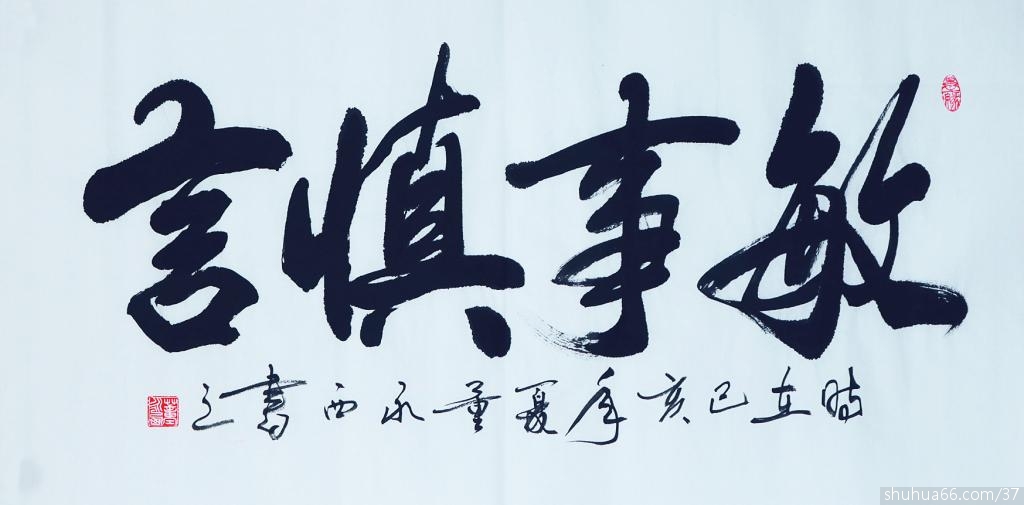 敏事慎言
時在己亥年夏董永西書之
shuhua66.com/37